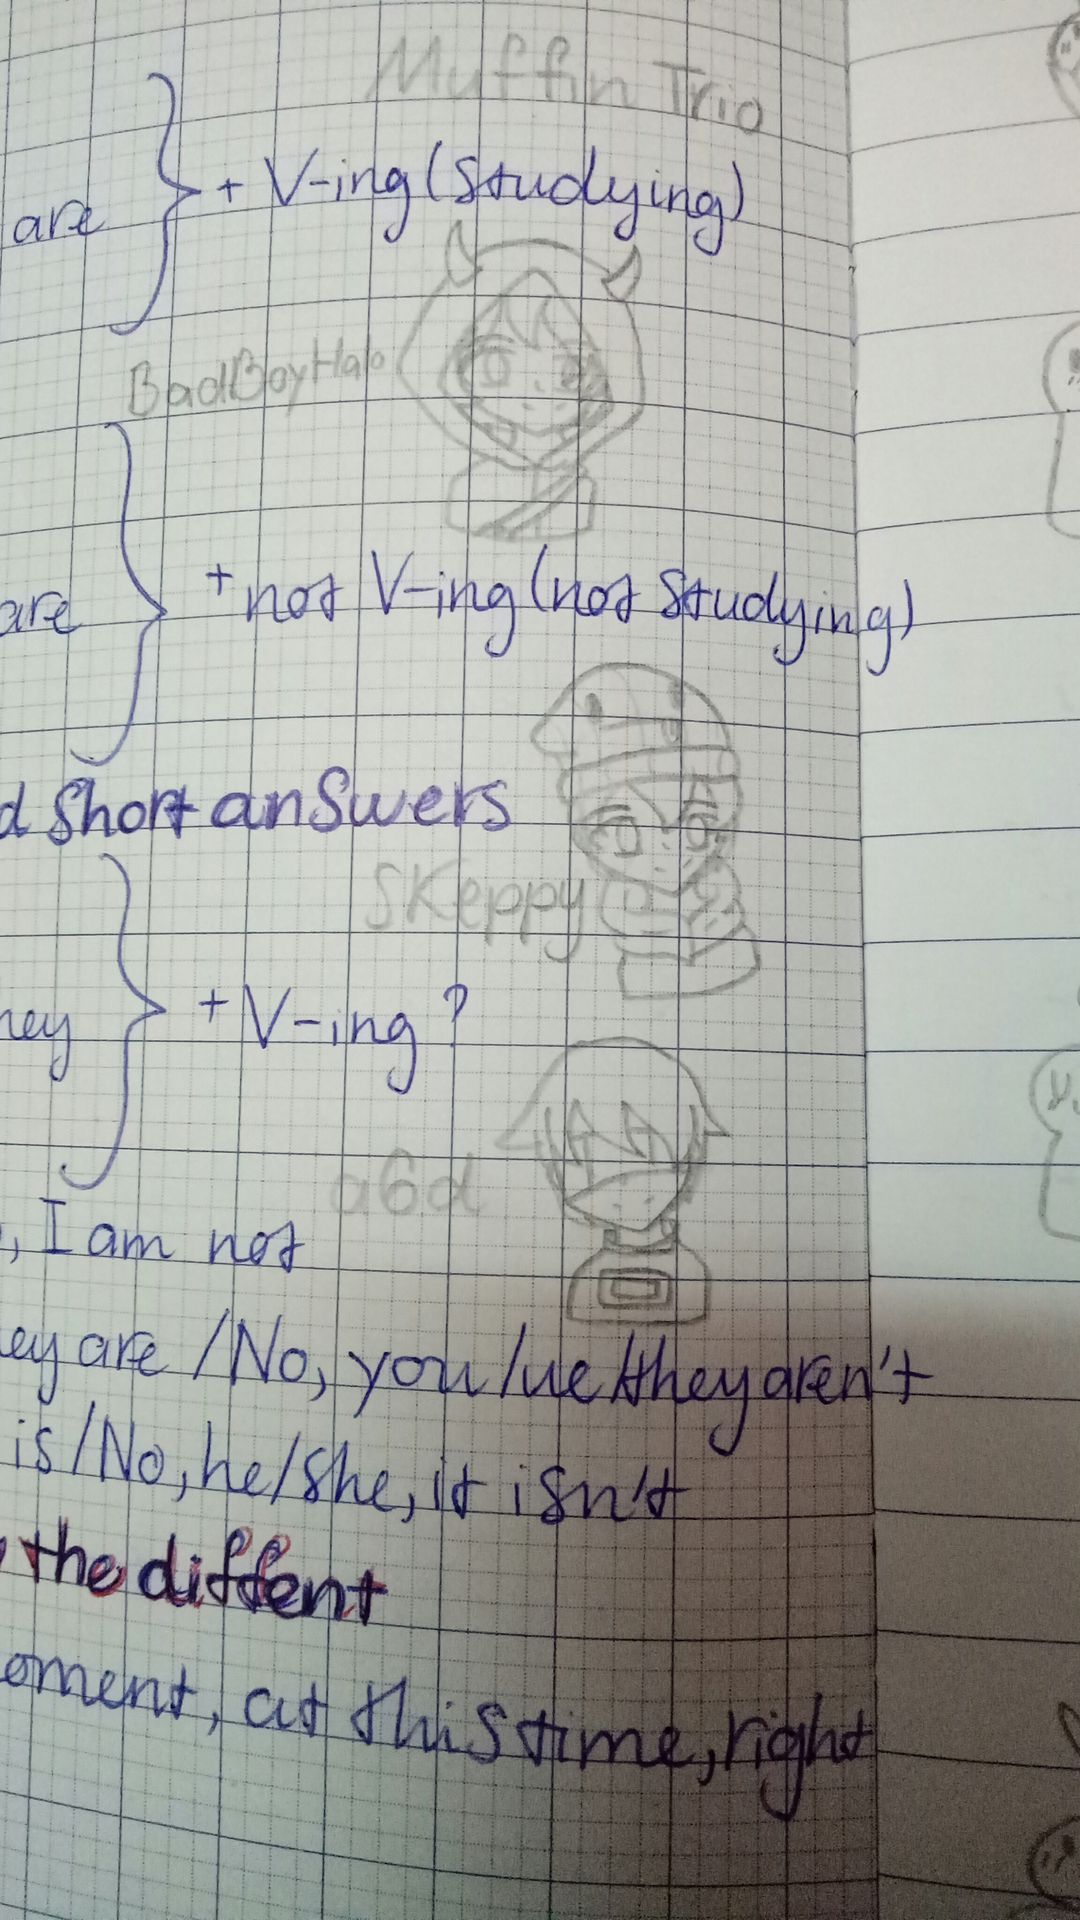 Muffin Trio
are + V-ing (studying)
BadBoyHalo
are + not V-ing (not studying)
d short answers
Skeppy
hey + V-ing?
a6d
, I am not
ey are / No, you / we / they aren't
is / No, he / she, it isn't
the diffent
oment, at this time, right